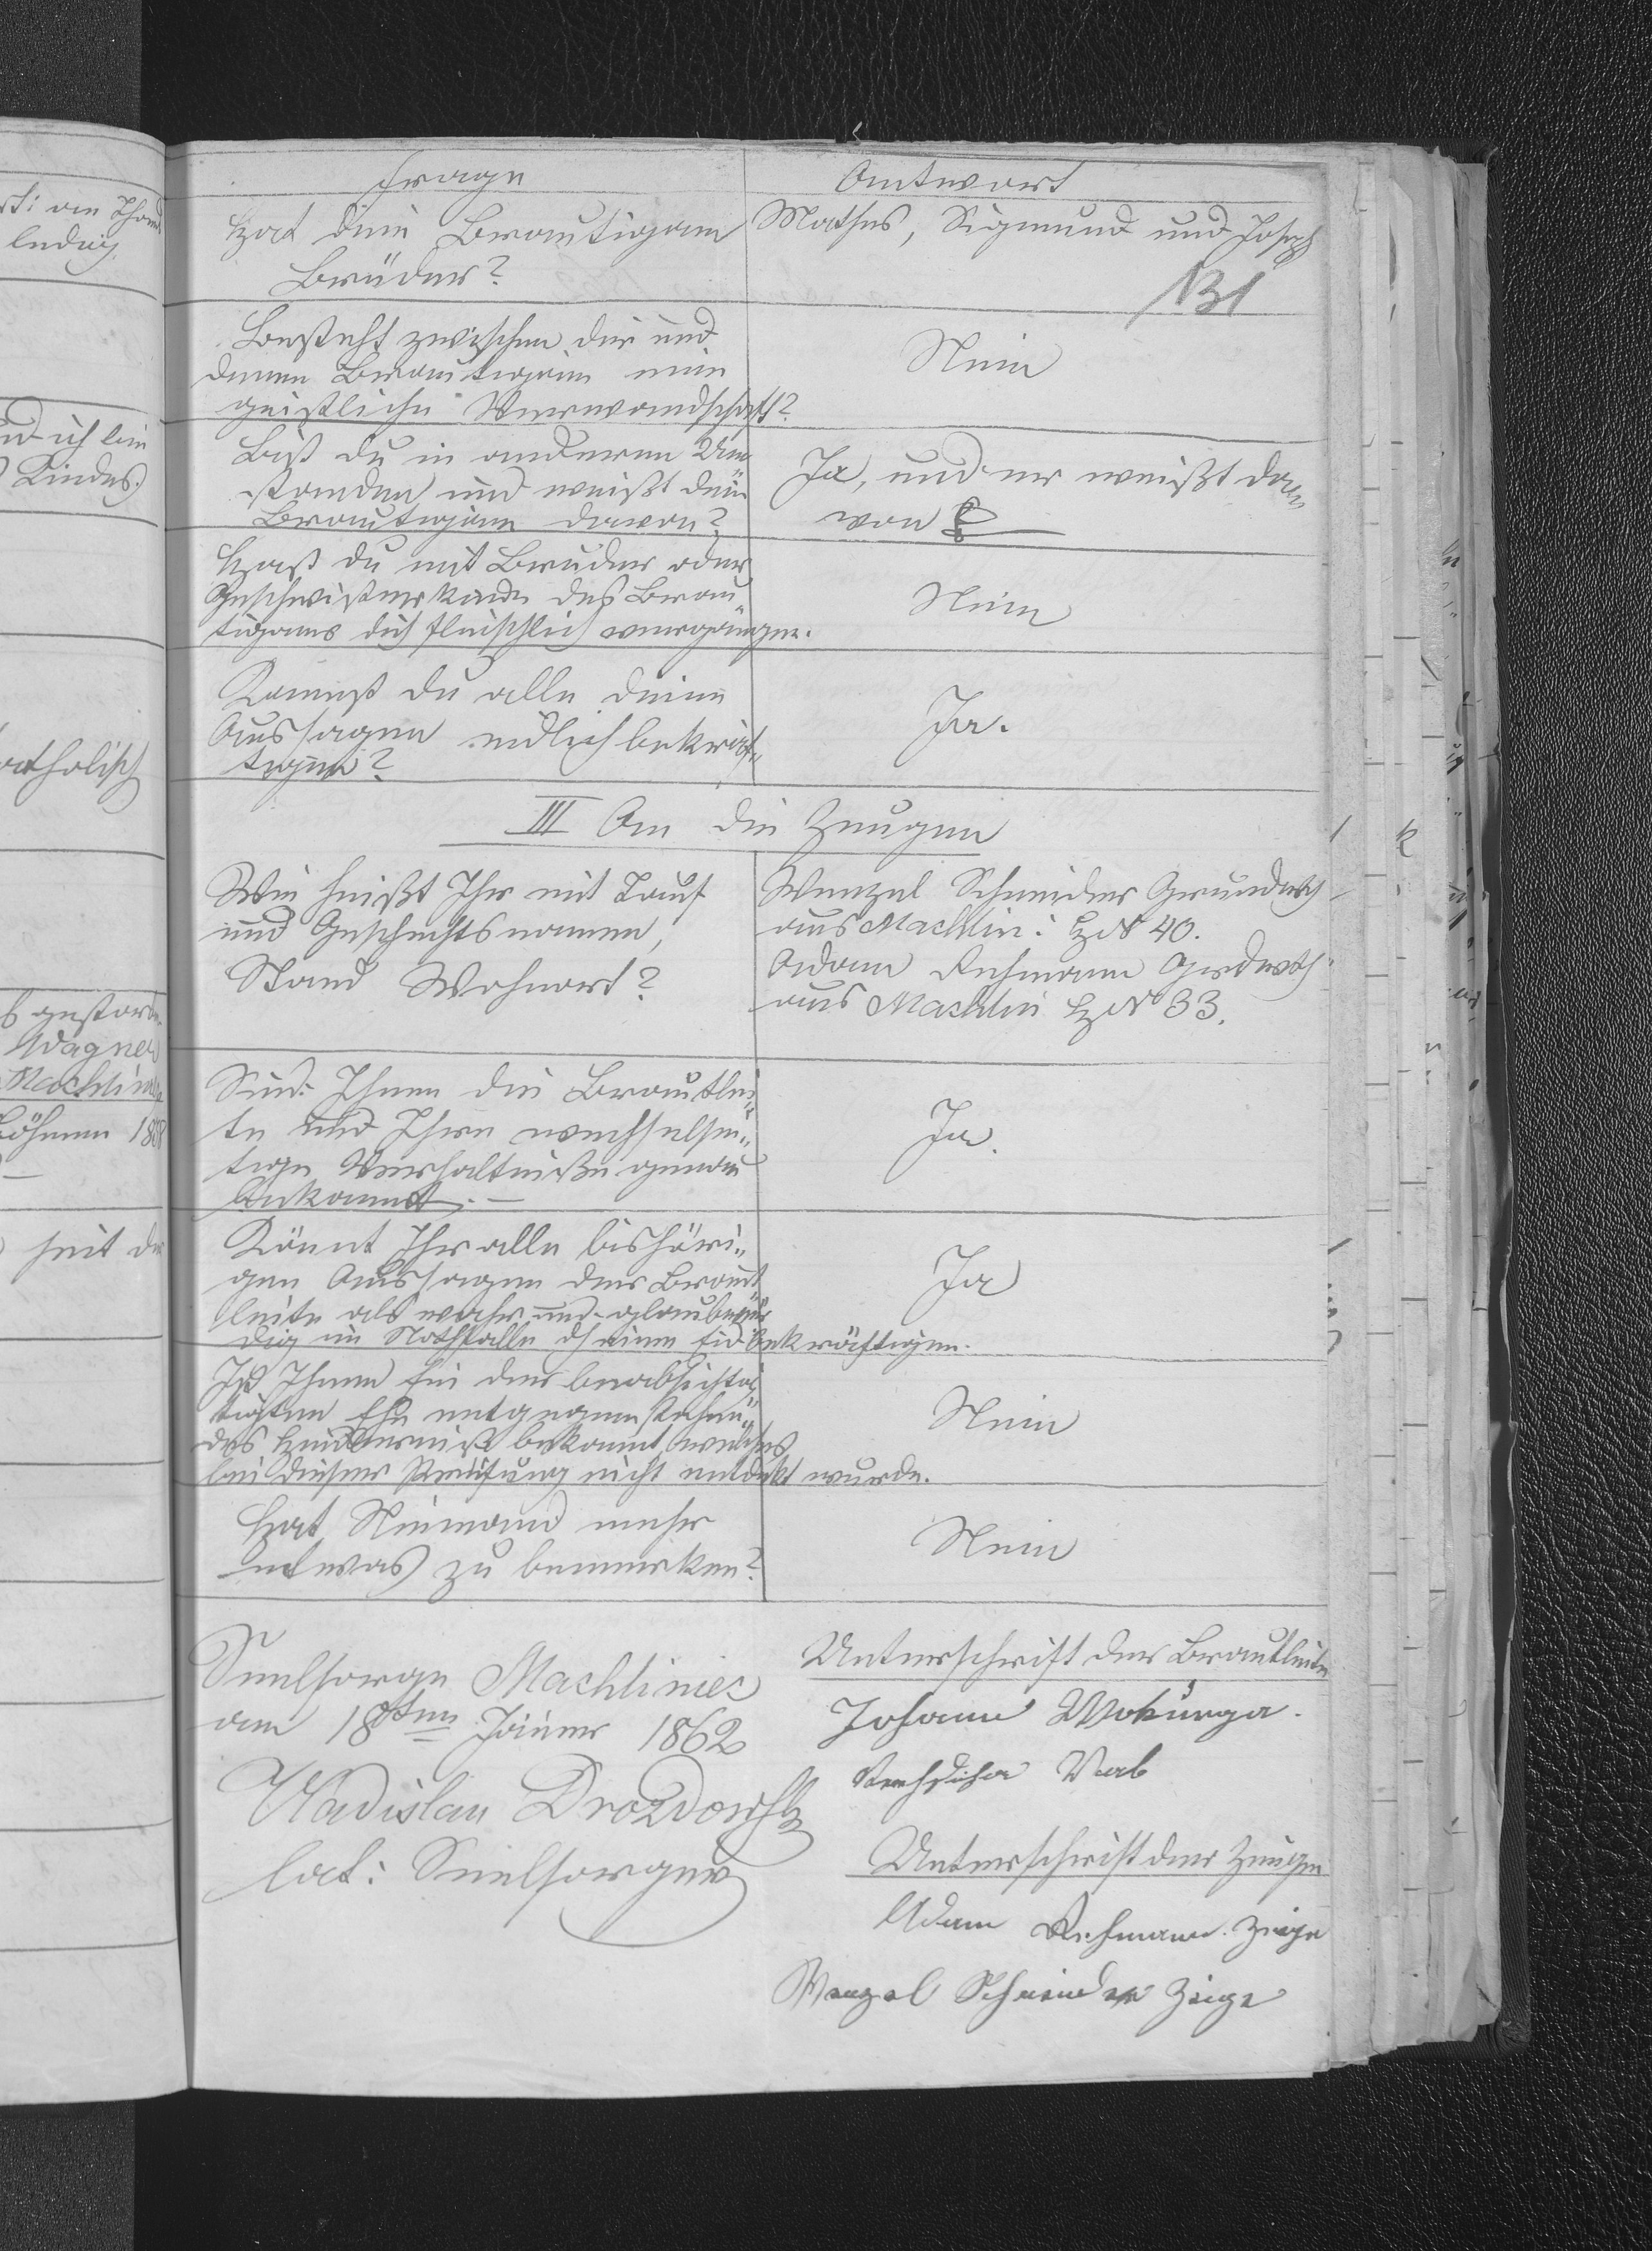 Frage
Antwort
Hat dein Brautigam
Brüder?
Mathes, Sigmund und Joseph
131
Besteht zwischen dir und
deinem Brautigam eine
geistliche Verwandschaft?
Nein
Bist du in anderen Um
standen und weißt dein
Brautigam davon?
Ja, und er weißt da„
von
Hast du mit Bruder oder
Geschwisterkinde des Brau„
tigams dich fleischlich vergangen.
Nein
Kannst du alle deine
Aussagen eidlich bekräf„
tigen?
Ja.
III An die Zeugen
Wie heißt Ihr mit Tauf
und Geschechtsnamen,
Stand Wohnort?
Wenzel Schneider Grundwth
aus Machlin: H N 40.
Adam Rehmann Grdwth
aus Machlin H N 33.
Sind Ihnen die Brautlei„
te und Ihre wechselsei„
tige Verhaltniße genau
bekannt.—
Ja.
Könnt Ihr alle bishöri„
gen Aussagen der Braut„
leite als wahr und glaubwür
dig im Nothfalle dh einen Eid bekräftigen.
Ja
Ist Ihnen ein der beabsichti„
tigten Ehe entgegenstehen„
des Hinderniß bekannt, welches
bei dieser Prüfung nicht entdekt wurde.
Nein
Hat Niemand mehr
etwas zu bemerken?
Nein
Seelsorge Machliniec
am 18ten Jäner 1862
Wladislau Drozdowski
lat: Seelsorger
Unterschrift der Brautleite
Johann Wokurga.
Unterschrift der Zeugen
Adam Rehmann. Zeige
Wenzel Schneider Zeige
ledig.
Kindes.
katholisch
Wagner
Böhmen
seit